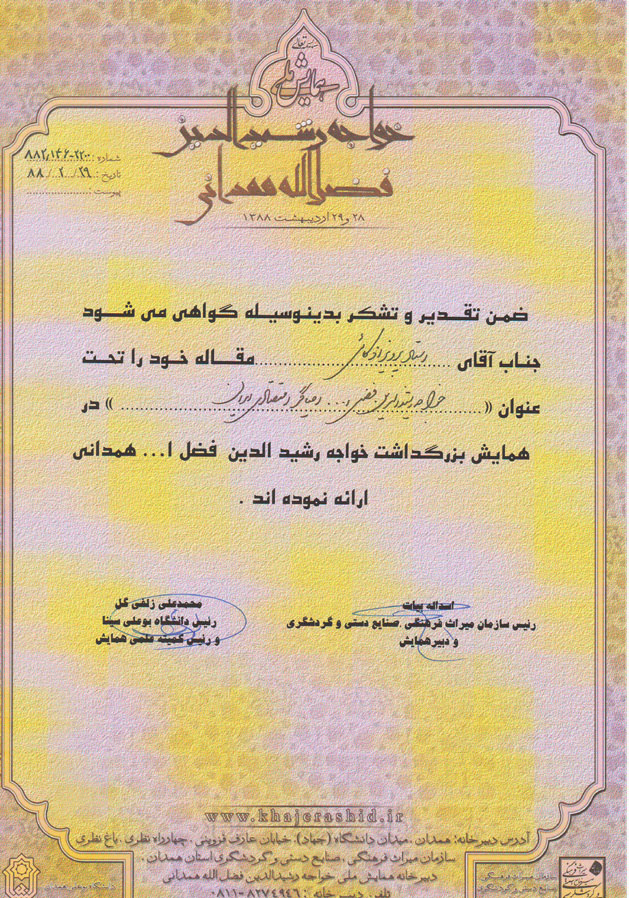 همایش ملی
خواجه رشیدالدین
فضل الله همدانی
۲۸ و ۲۹ اردیبهشت ۱۳۸۸
شماره:
تاریخ: ۸۸/۲/۲۹
پیوست:
ضمن تقدیر و تشکر بدینوسیله گواهی می شود
جناب آقای مقاله خود را تحت
عنوان (( خواجه )) در
همایش بزرگداشت خواجه رشید الدین فضل ا... همدانی
ارائه نموده اند .
اسداله بیات
رئیس سازمان میراث فرهنگی ،صنایع دستی و گردشگری
و دبیرهمایش
محمدعلی زلفی گل
رئیس دانشگاه بوعلی سینا
و رئیس کمیته علمی همایش
www.khajerashid.ir
آدرس دبیرخانه: همدان ، میدان دانشگاه (جهاد)، خیابان عارف قزوینی ، چهارراه نظری ، باغ نظری
سازمان میراث فرهنگی ، صنایع دستی و گردشگری استان همدان ،
دبیرخانه همایش ملی خواجه رشیدالدین فضل الله همدانی
تلفن دبیرخانه : ۸۲۷۴۹۴۶-۰۸۱۱